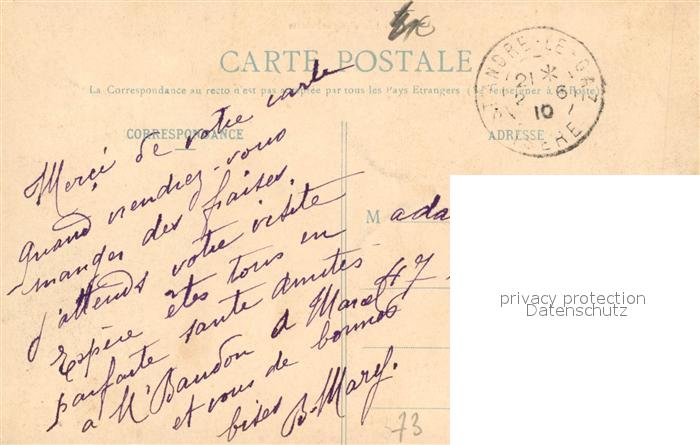 CARTE POSTALE
La Correspondance au recto n'est pas acceptée par tous les Pays Etrangers (Se renseigner à la Poste)
CORRESPONDANCE
ADRESSE
Merçi de votre carte
quand viendrez-vous
manger des fraises
j'attends votre visite
Espère êtes tous en
parfaite santé amitiés
a Mr Baudon et Marcel
et vous de bonnes
bises B. Mary.
Mada
47
73
ANDRE-LE-GAZ
21 *
2 6
10
ISERE
privacy protection
Datenschutz